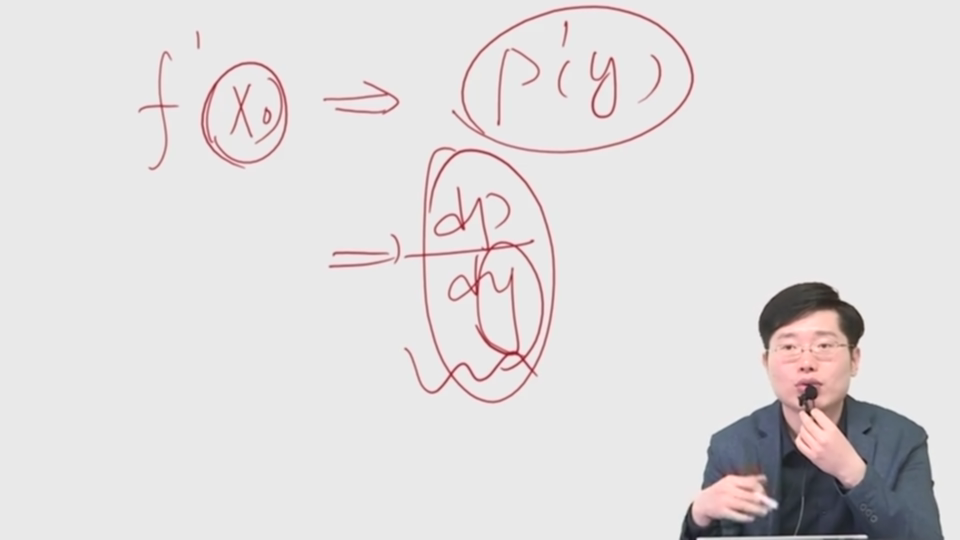 f'(x₀) ⇒ p'(y)
⇒ dp/dy